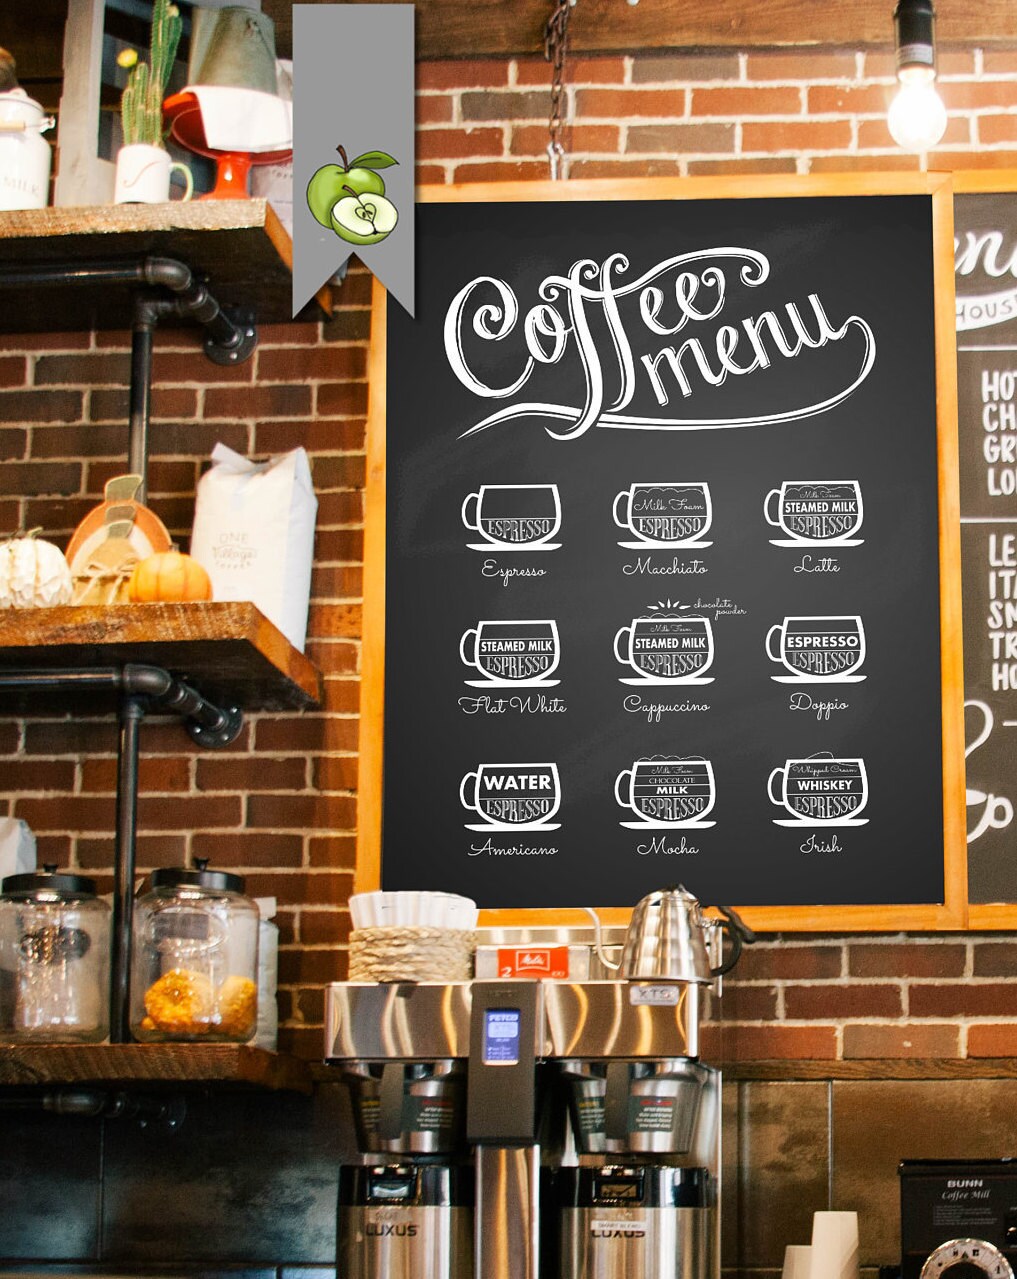 Coffee
menu
ESPRESSO
Espresso
Milk Foam
ESPRESSO
Macchiato
Milk Foam
STEAMED MILK
ESPRESSO
Latte
STEAMED MILK
ESPRESSO
Flat White
chocolate
powder
Milk Foam
STEAMED MILK
ESPRESSO
Cappuccino
ESPRESSO
ESPRESSO
Doppio
WATER
ESPRESSO
Americano
Milk Foam
CHOCOLATE
MILK
ESPRESSO
Mocha
Whipped Cream
WHISKEY
ESPRESSO
Irish
HOUS
HOT
CH
GR
LO
LE
ITA
SM
TR
HO
MILK
ONE
Village
COFFEE
Melitta
2
XTS
FETCO
XTS
LUXUS
LUXUS
BUNN
Coffee Mill